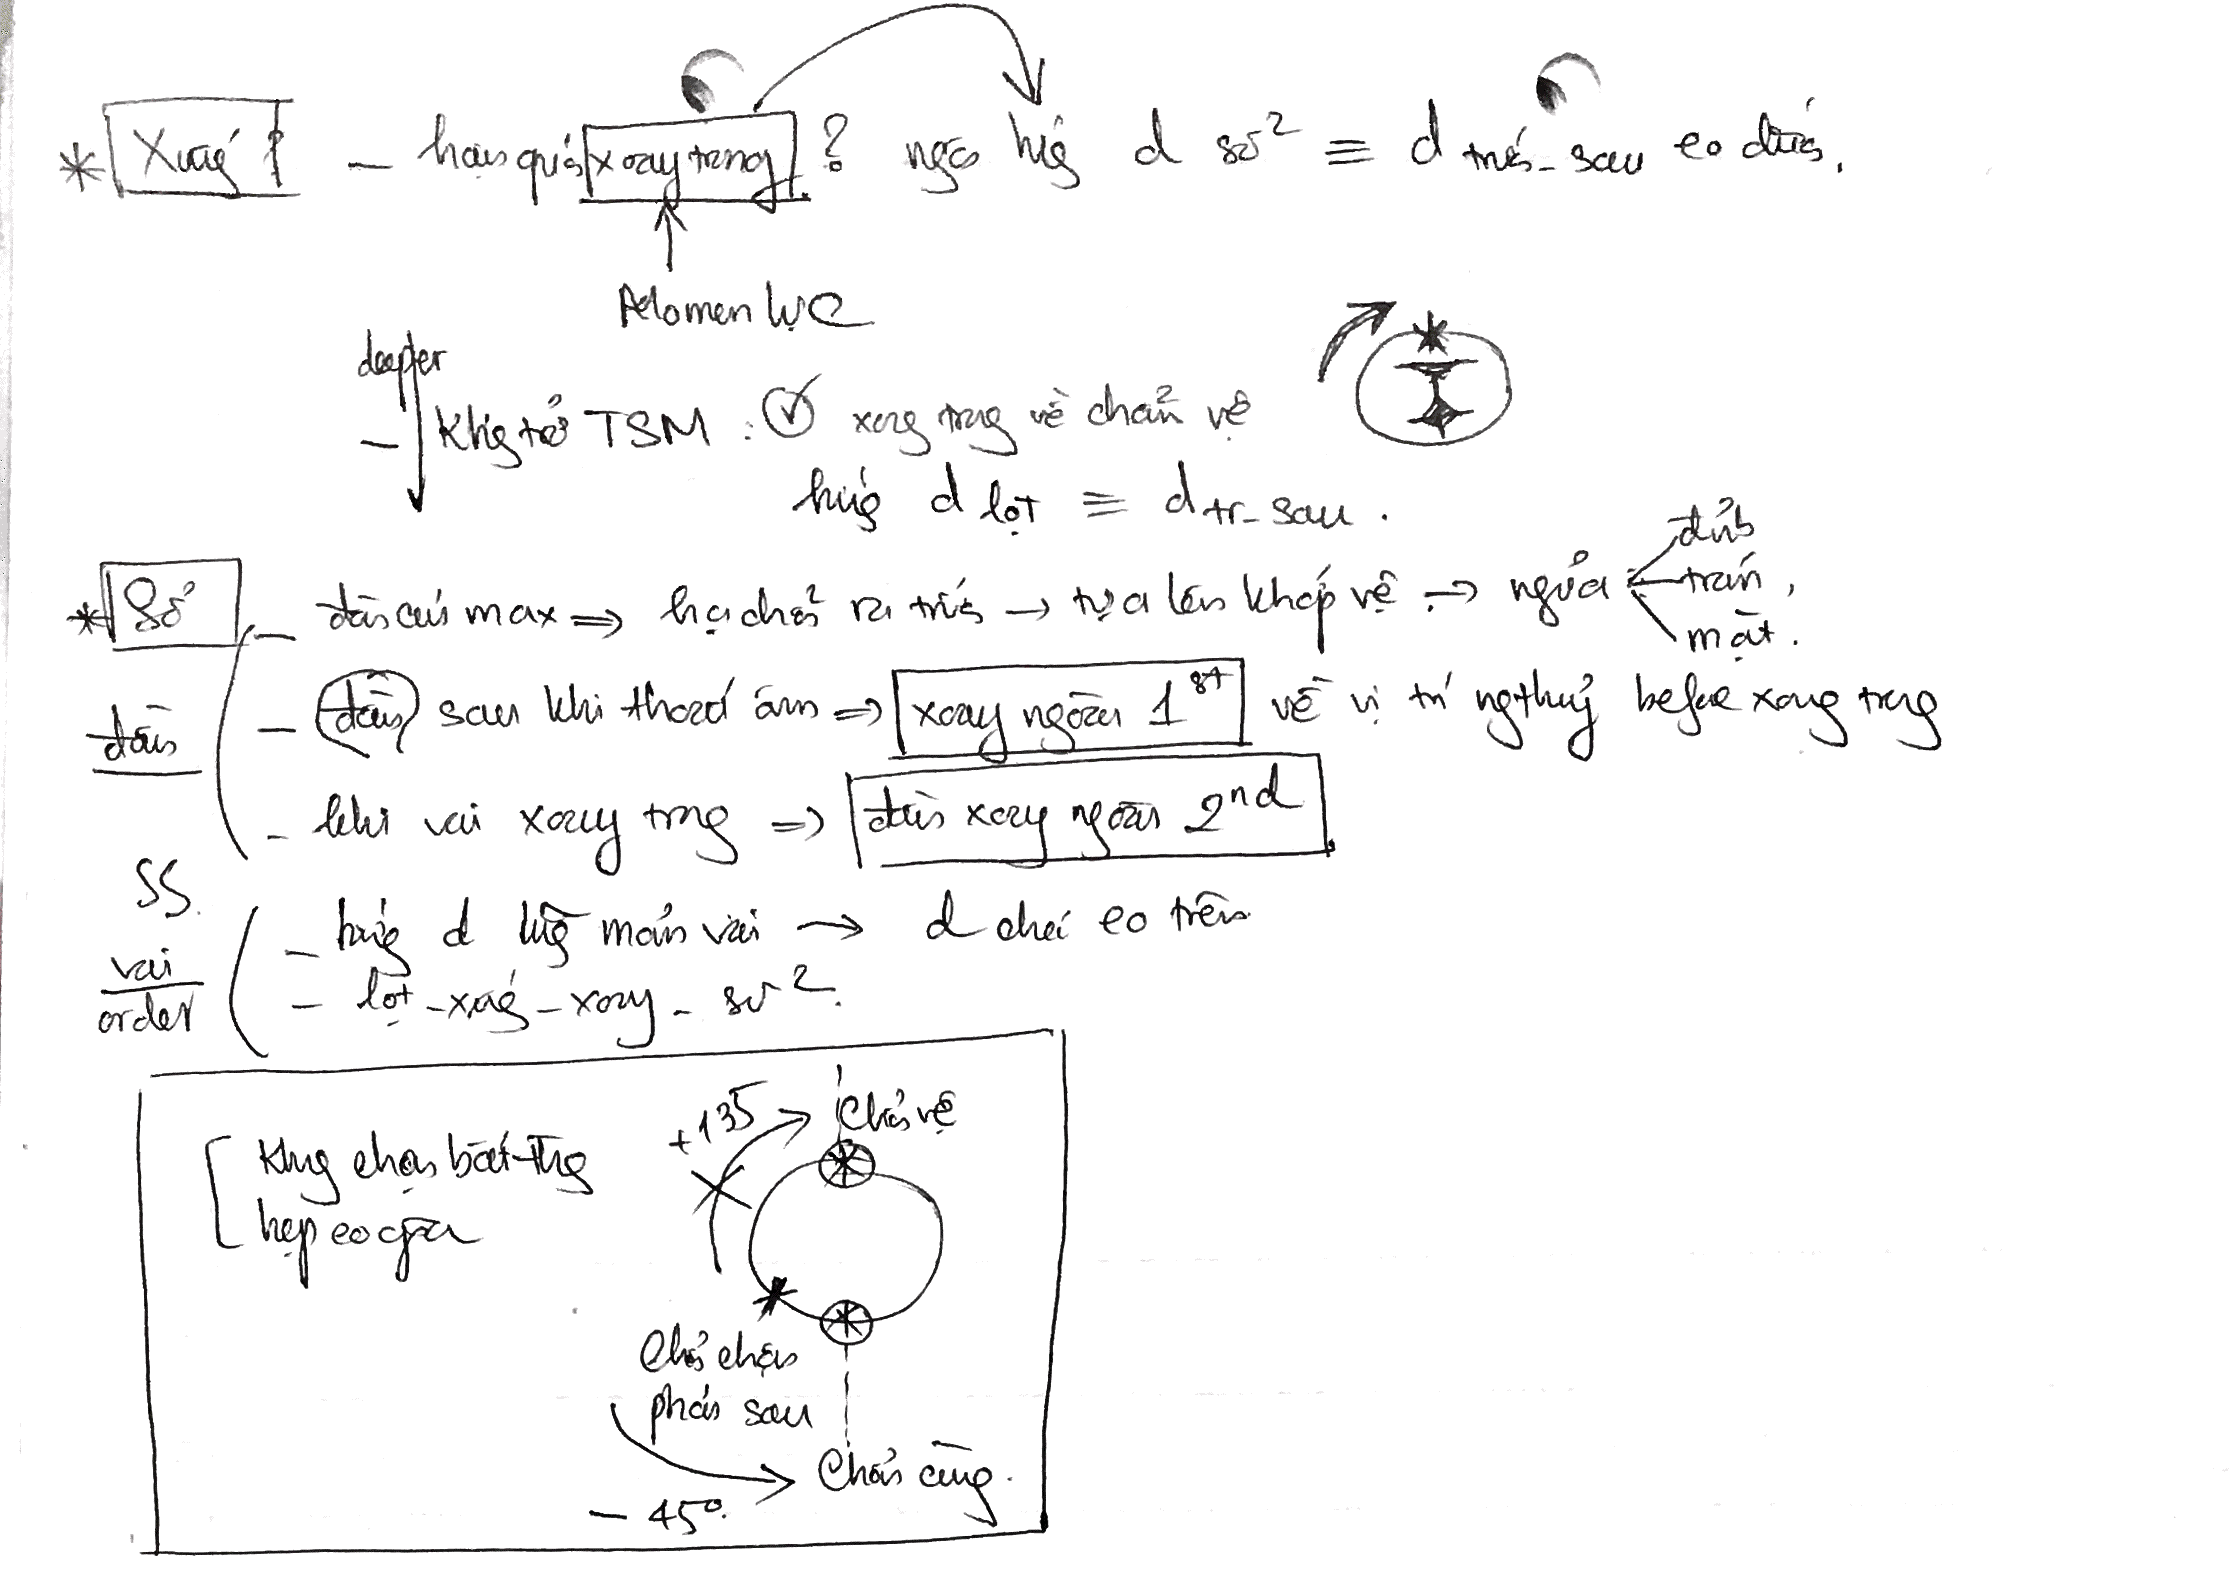 * Xuống - hoàn quá xoay trong ? ngõ hướng d sổ² ≡ d trước-sau eo dưới.
Momen lực
deeper
- Kháng trở TSM : ✓ xoay trong về chẩm vệ
hướng d lọt ≡ d tr-sau.
* Sổ - đầu cúi max ⇒ hạ chẩm² ra trước → tựa lên khớp vệ → ngửa
đỉnh
trán,
mặt.
- đầu sau khi thoát âm ⇒ xoay ngoài 1st về vị trí ng thuỷ before xoay trong
đầu
- khi vai xoay trong ⇒ đầu xoay ngoài 2nd
SS.
- hướng d lưỡng mỏm vai → d chéo eo trên
vai
order
- lọt - xuống - xoay - sổ².
+135
Chẩm vệ
Khung chậu bất tg
hẹp eo giữa
Chẩm chậu
phải sau
Chẩm cùng.
- 45°